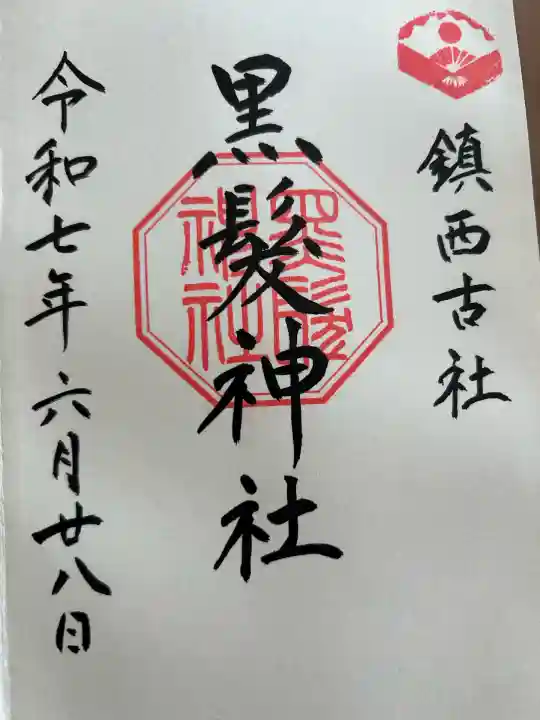 鎮西古社
黒髪神社
黒髪神社
令和七年六月廿八日